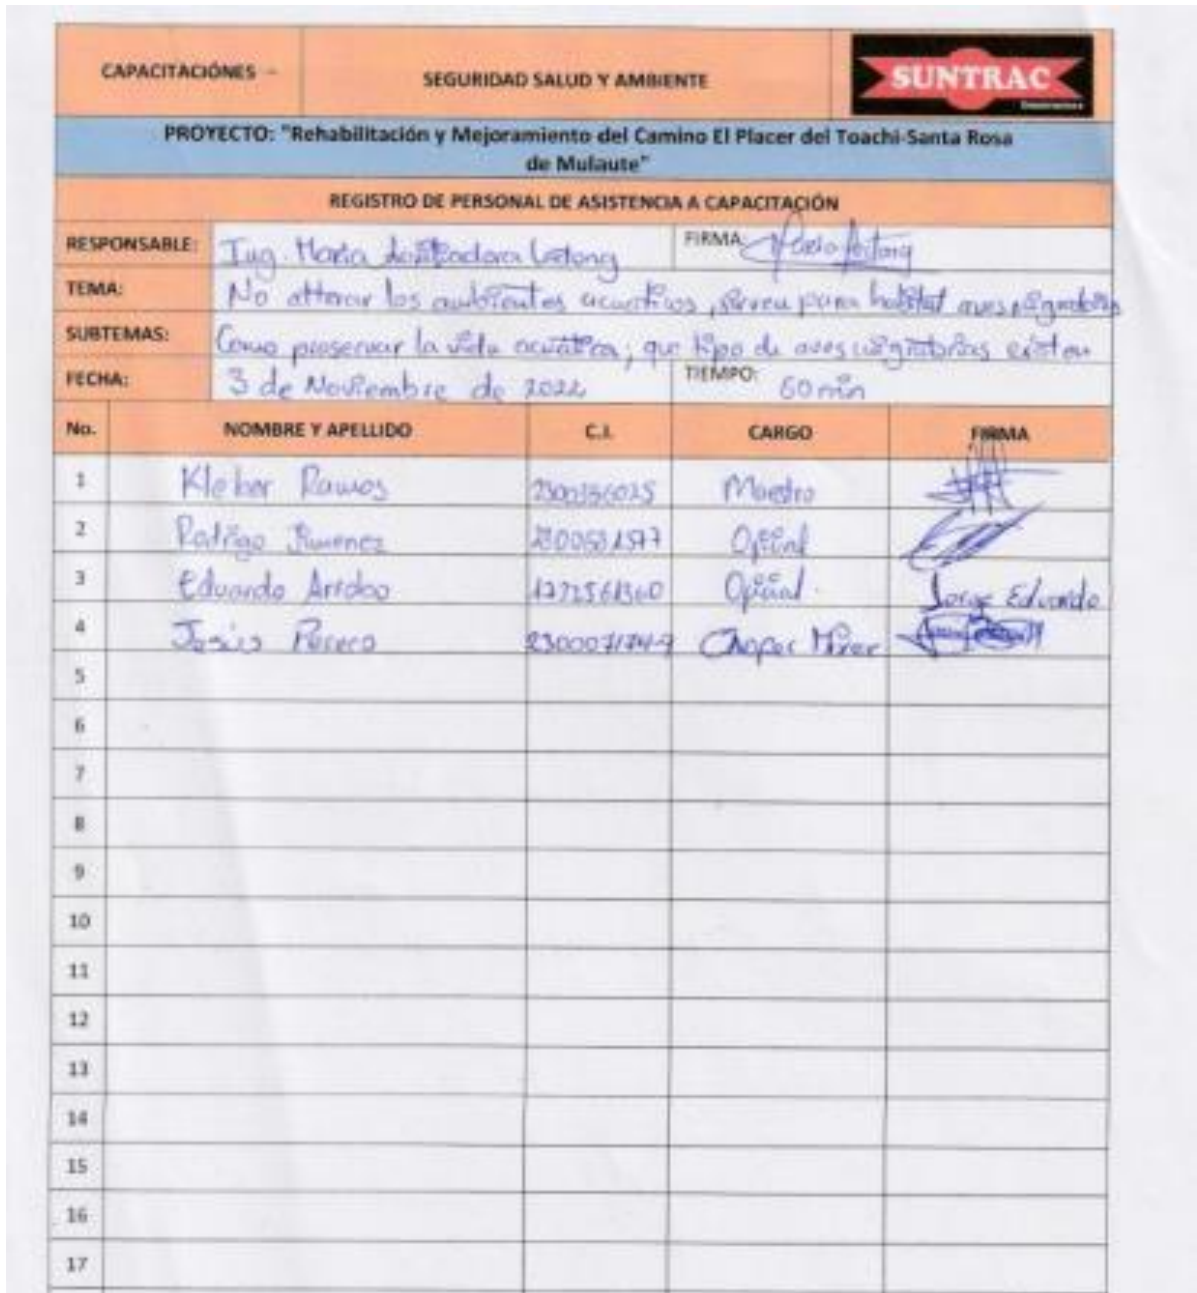 CAPACITACIÓNES - SEGURIDAD SALUD Y AMBIENTE SUNTRAC
PROYECTO: "Rehabilitación y Mejoramiento del Camino El Placer del Toachi-Santa Rosa
de Mulaute"
REGISTRO DE PERSONAL DE ASISTENCIA A CAPACITACIÓN
RESPONSABLE: Ing. Maria FIRMA:
TEMA: No alterar los ambientes acuaticos, sirven para habitat aves migratorias
SUBTEMAS: Como preservar la vida acuática; que tipo de aves migratorias existen
FECHA: 3 de Noviembre de 2022 TIEMPO: 60 min
No. NOMBRE Y APELLIDO C.I. CARGO FIRMA
1 Kleber Ramos Maestro
2 Rodrigo Jimenez Oficial
3 Eduardo Oficial. Jorge Eduardo
4 Jesús Chofer Mixer
5
6
7
8
9
10
11
12
13
14
15
16
17